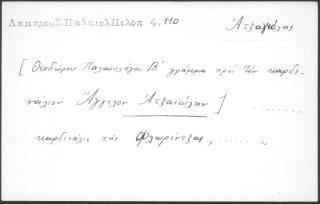 Λάμπρου Σ. Παλαιολ Πελοπ 4.110
Ἀτζαγιόλης
[Θεοδώρου Παλαιολόγου Β' γράμμα πρὸς τὸν καρδι-
νάλιον Ἄγγελον Ἀτζαϊώλην] ........
καρδινάλις τᾶς Φλωρέντζας, ........ "